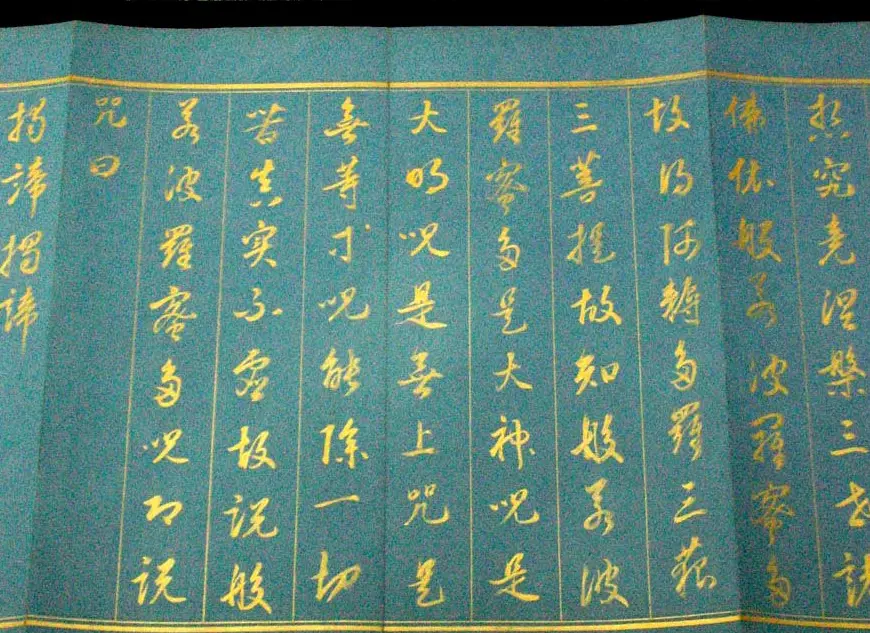 想究竟涅槃三世諸
佛依般若波羅蜜多
故得阿耨多羅三藐
三菩提故知般若波
羅蜜多是大神呪是
大明呪是無上咒是
無等等呪能除一切
苦真实不虛故說般
若波羅蜜多呪即說
咒曰
揭諦揭諦